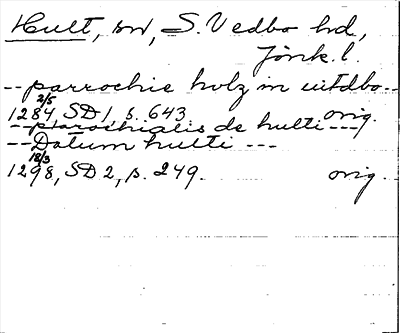 Hult, sn, S. Vedbo hd,
Jönk. l.
-- parrochie holz in uitdbo --
2/5
1284, SD 1, s. 643 orig.
-- parochialis de hulti ---
-- Datum hulti ---
18/3
1298, SD 2, s. 249. orig.